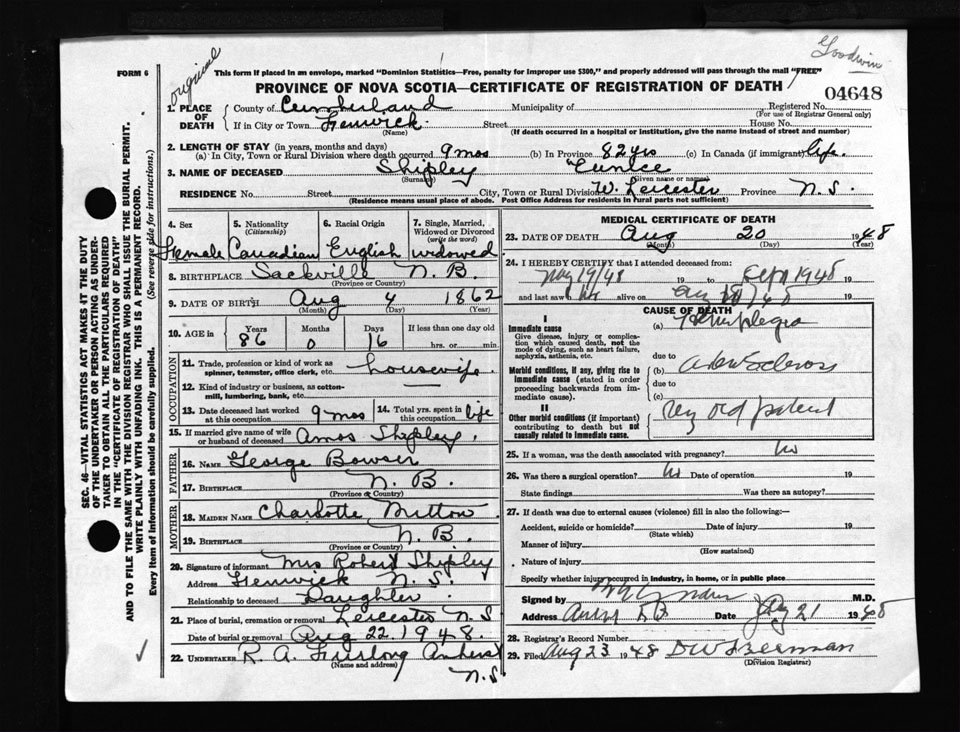 Goodwin
original
FORM 6
This form if placed in an envelope, marked "Dominion Statistics—Free, penalty for improper use $300," and properly addressed will pass through the mail "FREE"
PROVINCE OF NOVA SCOTIA—CERTIFICATE OF REGISTRATION OF DEATH
04648
1. PLACE OF DEATH
County of Cumberland Municipality of Registered No.
(For use of Registrar General only)
If in City or Town Fenwick Street House No.
(Name) (If death occurred in a hospital or institution, give the name instead of street and number)
2. LENGTH OF STAY (in years, months and days)
(a) In City, Town or Rural Division where death occurred 9 mos (b) In Province 82 yrs (c) In Canada (if immigrant) life.
3. NAME OF DECEASED Shipley Eunice
(Surname) (Given name or names)
RESIDENCE No. Street City, Town or Rural Division W. Leicester Province N.S.
(Residence means usual place of abode. Post Office Address for residents in rural parts not sufficient)
SEC. 46—VITAL STATISTICS ACT MAKES IT THE DUTY
OF THE UNDERTAKER OR PERSON ACTING AS UNDER-
TAKER TO OBTAIN ALL THE PARTICULARS REQUIRED
IN THE "CERTIFICATE OF REGISTRATION OF DEATH"
AND TO FILE THE SAME WITH THE DIVISION REGISTRAR WHO SHALL ISSUE THE BURIAL PERMIT.
WRITE PLAINLY WITH UNFADING INK. THIS IS A PERMANENT RECORD.
Every item of information should be carefully supplied. (See reverse side for instructions.)
4. Sex 5. Nationality (Citizenship) 6. Racial Origin 7. Single, Married, Widowed or Divorced (write the word)
Female Canadian English widowed
8. BIRTHPLACE Sackville N.B.
(Province or Country)
9. DATE OF BIRTH Aug 4 1862
(Month) (Day) (Year)
10. AGE in Years Months Days If less than one day old
86 0 16 hrs. or min.
OCCUPATION
11. Trade, profession or kind of work as spinner, teamster, office clerk, etc. housewife
12. Kind of industry or business, as cotton-mill, lumbering, bank, etc. —
13. Date deceased last worked at this occupation 9 mos 14. Total yrs. spent in this occupation life
15. If married give name of wife or husband of deceased Amos Shipley
FATHER
16. NAME George Bowser
17. BIRTHPLACE N.B.
(Province or Country)
MOTHER
18. MAIDEN NAME Charlotte Mitton
19. BIRTHPLACE N.B.
(Province or Country)
20. Signature of informant Mrs Robert Shipley
Address Fenwick N.S.
Relationship to deceased Daughter
21. Place of burial, cremation or removal Leicester N.S
Date of burial or removal Aug 22. 1948.
22. UNDERTAKER R. A. Furlong Amherst
(Name and address)
N.S
MEDICAL CERTIFICATE OF DEATH
23. DATE OF DEATH Aug 20 1948
(Month) (Day) (Year)
24. I HEREBY CERTIFY that I attended deceased from:
19 to 19
and last saw her alive on 19
CAUSE OF DEATH
I
Immediate cause
Give disease, injury or complication which caused death, not the mode of dying, such as heart failure, asphyxia, asthenia, etc.
(a) Hemiplegia
due to
Morbid conditions, if any, giving rise to immediate cause (stated in order proceeding backwards from immediate cause).
(b)
due to
(c)
II
Other morbid conditions (if important) contributing to death but not causally related to immediate cause.
very old patient
25. If a woman, was the death associated with pregnancy? no
26. Was there a surgical operation? no Date of operation 19
State findings Was there an autopsy?
27. If death was due to external causes (violence) fill in also the following:—
Accident, suicide or homicide? Date of injury 19
(State which)
Manner of injury
(How sustained)
Nature of injury
Specify whether injury occurred in industry, in home, or in public place
Signed by M.D.
Address Date Aug 21 1948
28. Registrar's Record Number
29. Filed Aug 23 1948
(Division Registrar)